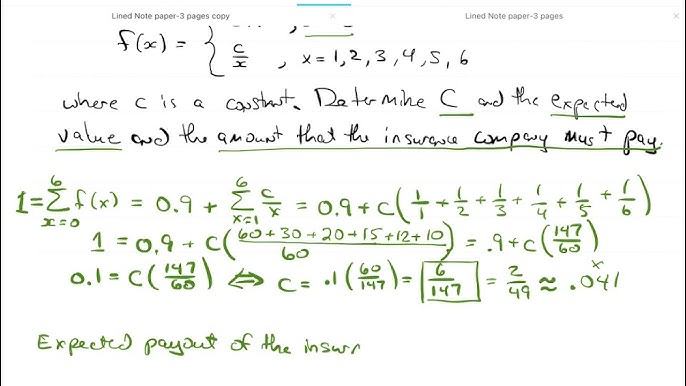 Lined Note paper-3 pages copy
Lined Note paper-3 pages
f(x) = {
c/x , x = 1, 2, 3, 4, 5, 6
where c is a constant. Determine C and the expected
value and the amount that the insurance company must pay.
1 = Σ_{x=0}^{6} f(x) = 0.9 + Σ_{x=1}^{6} c/x = 0.9 + c(1/1 + 1/2 + 1/3 + 1/4 + 1/5 + 1/6)
1 = 0.9 + c((60+30+20+15+12+10)/60) = .9 + c(147/60)
0.1 = c(147/60) ⟺ c = .1(60/147) = 6/147 = 2/49 ≈ .041
x
Expected payout of the insurr